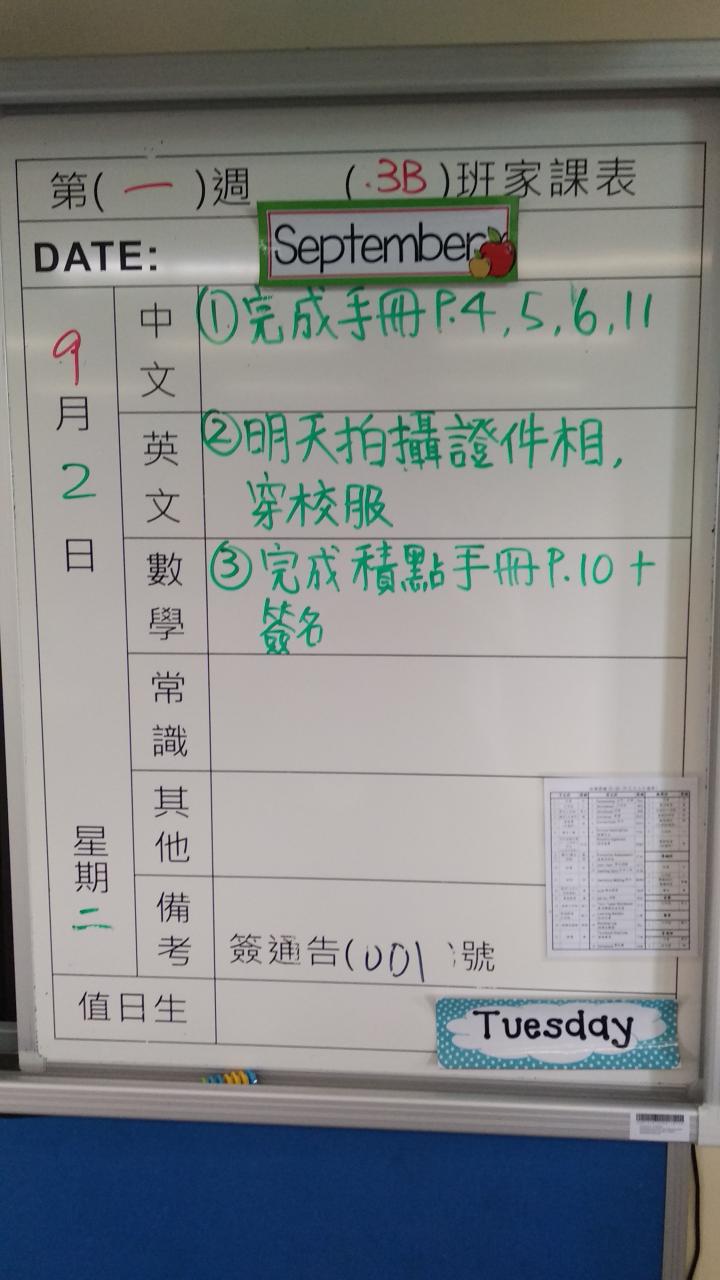 第(一)週 (3B)班家課表
DATE: September
9月2日
星期二
中文 ①完成手冊P.4,5,6,11
英文 ②明天拍攝證件相,
穿校服
數學 ③完成積點手冊P.10+
簽名
常識
其他
備考 簽通告(001)號
值日生
Tuesday